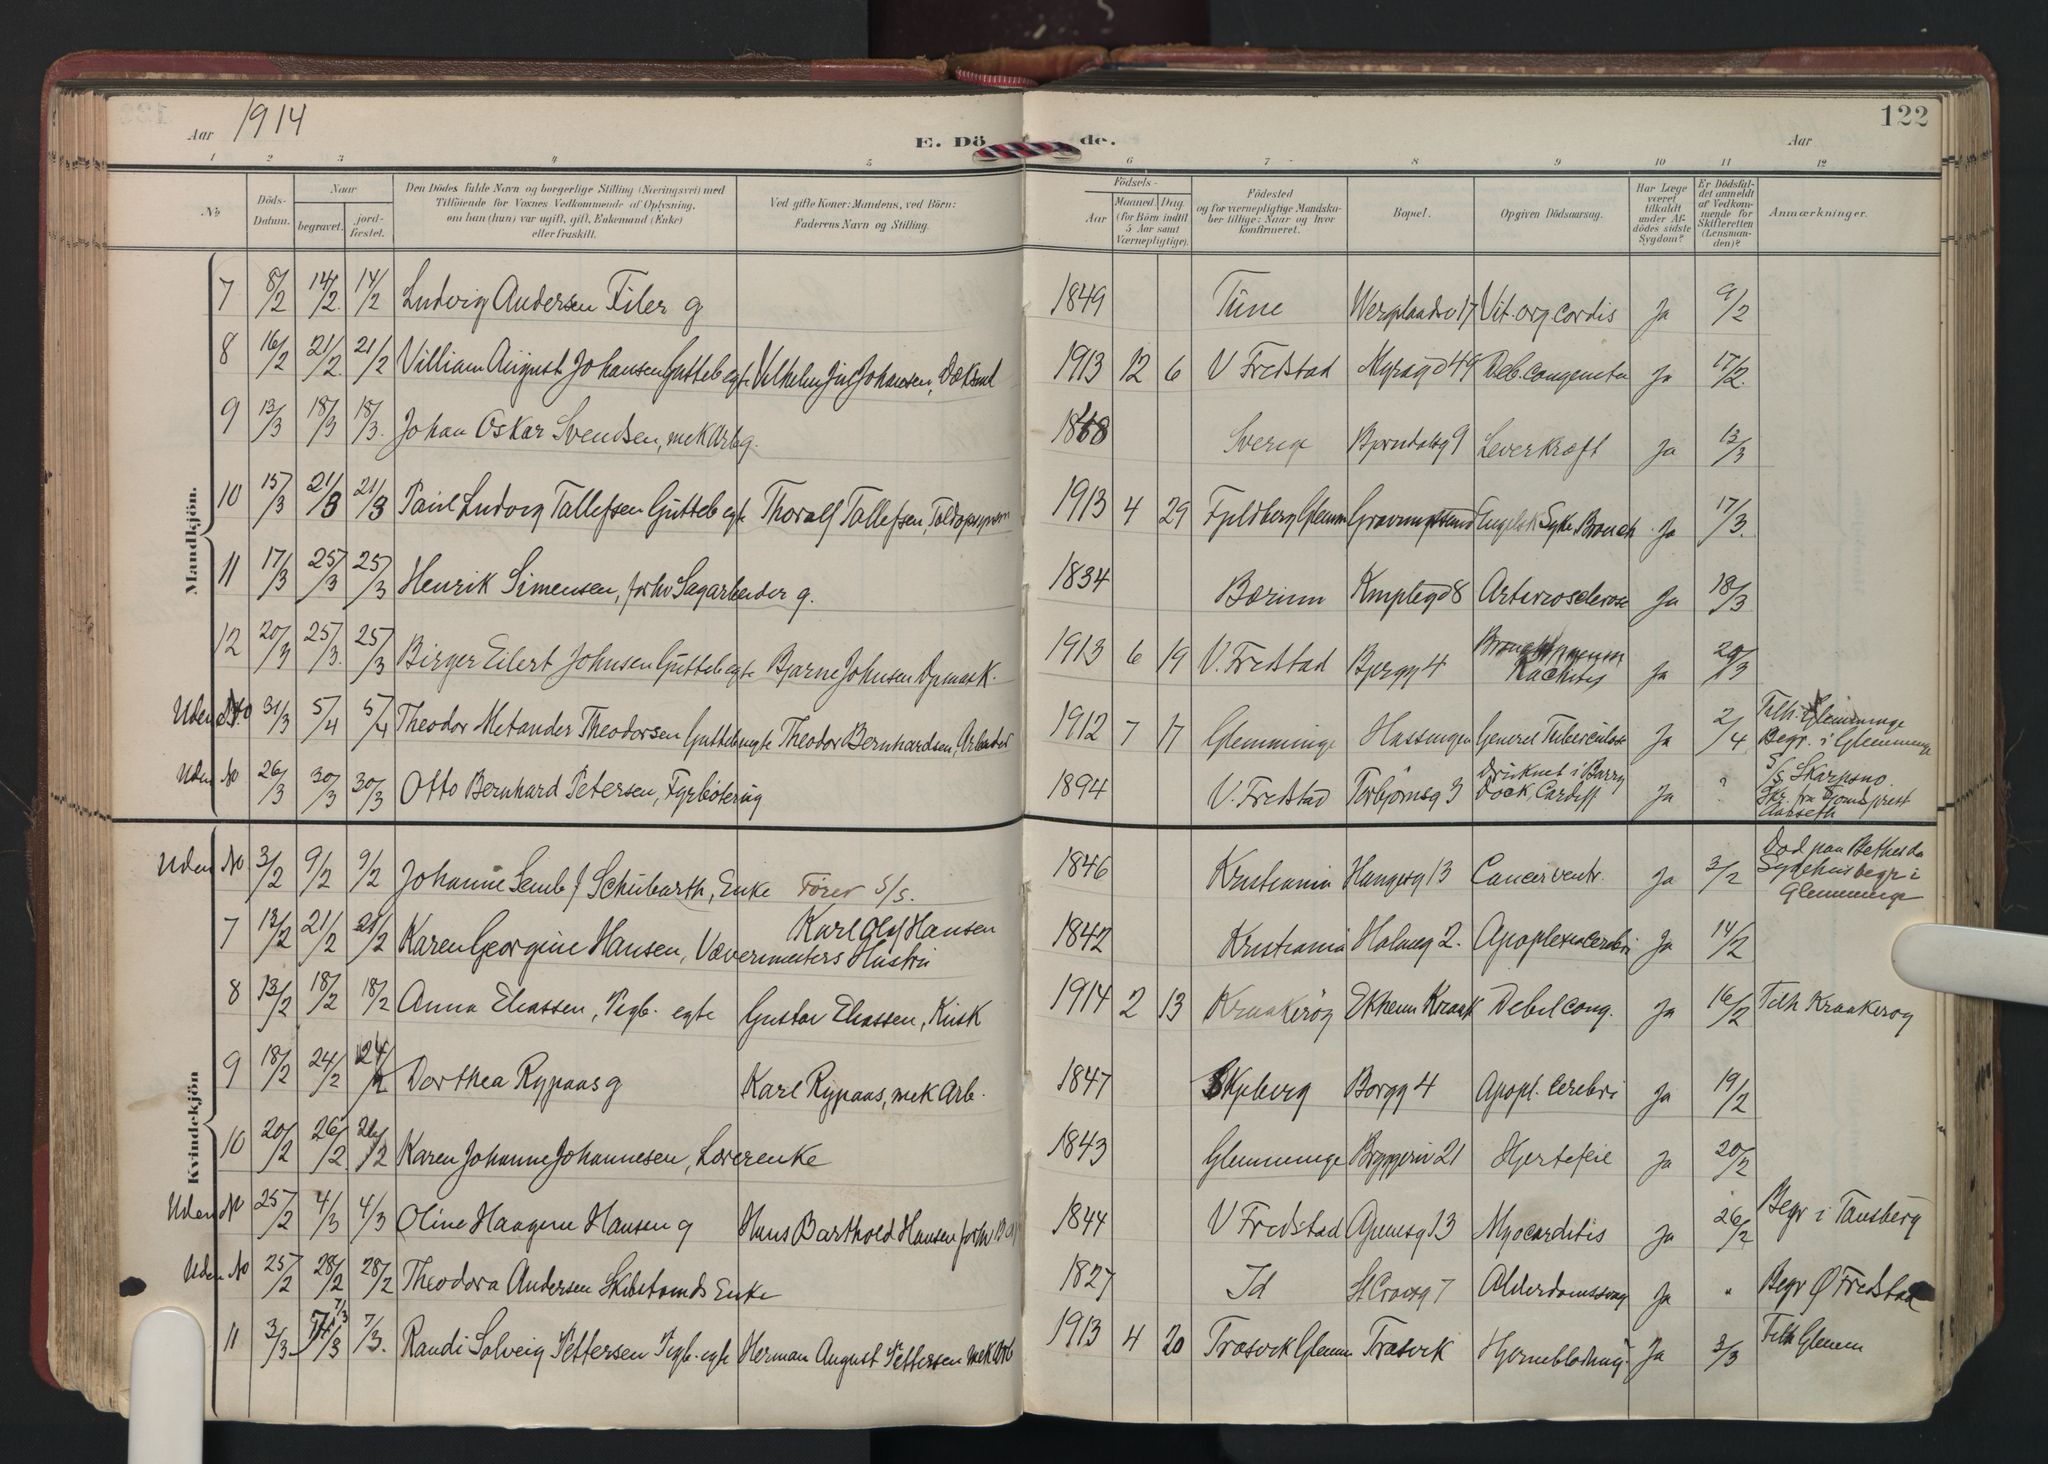 Aar 1914
E. Dö de.
Aar
122
1 2 3 4 5 6 7 8 9 10 11 12
№
Döds-Datum.
Naar
begravet.
jord-fæstet.
Den Dödes fulde Navn og borgerlige Stilling (Næringsvei) med
Tilföiende for Voxnes Vedkommende af Oplysning,
om han (hun) var ugift, gift, Enkemand (Enke)
eller fraskilt.
Ved gifte Koner: Mandens, ved Börn:
Faderens Navn og Stilling.
Födsels-
Aar
Maaned. Dag.
(for Börn indtil
5 Aar samt
Værnepligtige).
Födested
og for værnepligtige Mandska-
ber tillige: Naar og hvor
konfirmeret.
Bopæl.
Opgiven Dödsaarsag.
Har Læge
været
tilkaldt
under Af-
dödes sidste
Sygdom?
Er Dödsfal-
det anmeldt
af Vedkom-
mende for
Skifteretten
(Lensman-
den)?
Anmærkninger.
Mandkjön.
7 8/2 14/2 14/2 Ludvig Andersen Filer g 1849 Tune 17 Vit. org cordis Ja 9/2
8 16/2 21/2 21/2 Villiam August Johansen Gutteb egte Vilhelm Johansen, 1913 12 6 V Fredstad 49 Deb. congenita Ja 17/2
9 13/3 18/3 18/3 Johan Oskar Svendsen, mek Arb g. Sverige Bjorndalsg 9 Leverkræft Ja 13/3
10 15/3 21/3 21/3 Paul Ludvig Tallefsen Gutteb egte Thoralf Tallefsen, 1913 4 29 Fjeldberg Glemm Engelsk Syke Bronch Ja 17/3
11 17/3 25/3 25/3 Henrik Simensen, forhv Sagarbeider g. 1834 Bærum 8 Arteriosclerose Ja 18/3
12 20/3 25/3 25/3 Birger Eilert Johnsen Gutteb egte Bjarne Johnsen 1913 6 19 V. Fredstad Bjergg 4 Rachitis Ja 20/3
Uden No 31/3 5/4 5/4 Theodor Metander Theodorsen Gutteb egte Theodor Bernhardsen, Arbeider 1912 7 17 Glemminge Hassingen General Tuberculose Ja 2/4 Tilh. Glemminge
Begr. i Glemminge
Uden No 26/3 30/3 30/3 Otto Bernhard Petersen, Fyrböter ug 1894 V. Fredstad Torbjörnsg 3 Druknet i Barry
Dock, Cardiff Ja ? S/S Skarpsno
Skr. fra Sjömdsprest
Kvindekjön
Uden No 3/2 9/2 9/2 Johanne Semb f Schubarth, Enke Förer S/s. 1846 Kristiania 13 Cancer ventr. Ja 3/2 Död paa Bethesda
Sygehus begr i
Glemminge
7 13/2 21/2 21/2 Karen Georgine Hansen, Vævermesters Hustru Karl Olaf Hansen 1842 Kristiania 2. Apoplexia cerebri Ja 14/2
8 13/2 18/2 18/2 Anna Eliassen, Pigb. egte Gustav Eliassen, Kusk 1914 2 13 Kraakerøy Ekheim Kraak Debil cong. Ja 16/2 Tilh Kraakerøy
9 18/2 24/2 24/2 Dorthea Rypaas g Karl Rypaas, mek Arb. 1847 Skjeberg Borgg 4 Apopl. cerebri Ja 19/2
10 20/2 26/2 26/2 Karen Johanne Johannesen, Lærerenke 1843 Glemminge Bryggeriv 21 Hjertefeil Ja 20/2
Uden No 25/2 4/3 4/3 Oline Haagine Hansen g Hans Barthold Hansen forhv 1844 V Fredstad 13 Myocarditis Ja 26/2 Begr i Tønsberg
Uden No 25/2 28/2 28/2 Theodora Andersen Skibstømds Enke 1827 Id St Croixg 7 Alderdomssvag Ja " Begr Ø Fredstad
11 3/3 7/3 7/3. Randi Solveig Pettersen Pigb. egte Herman August Pettersen mek Arb 1913 4 20 Trosvik Glemm Trosvik Hjerneblödning Ja 3/3 Tilh Glemm